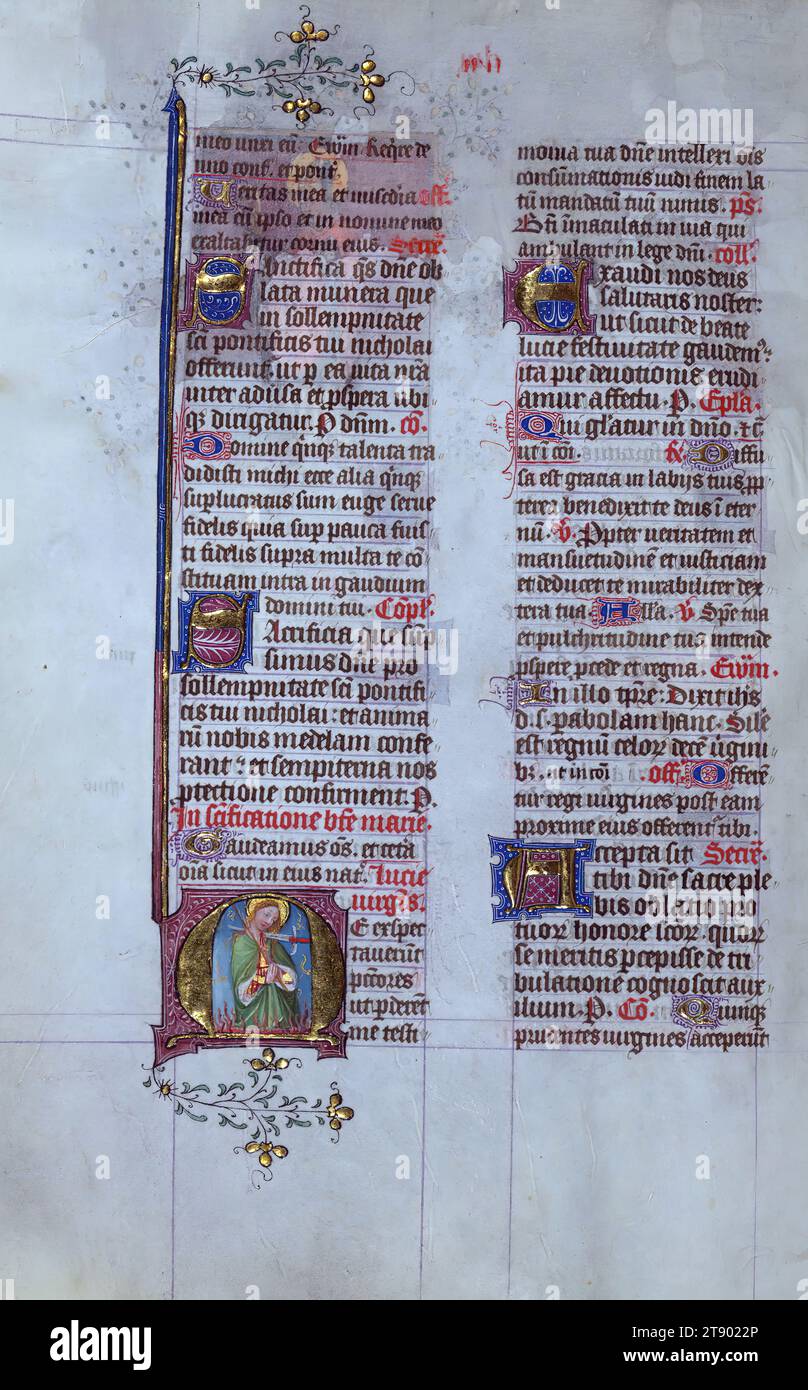 meo unei eū. Ewm Reqre de
uno conf. et pont.
Ueritas mea et miscdia off.
mea cū ipso et in nomine meo
exaltabitur cornu eius. Secre.
Sanctifica qs dne ob
lata munera que
in sollempnitate
sci pontificis tui nicholai
offerunt. ut p ea uita nra
inter aduersa et pspera ubi
qz dirigatur. P dnm. co.
Domine qnqz talenta tra
didisti michi ecce alia qnqz
suplucratus sum euge serue
fidelis quia sup pauca fuis
ti fidelis supra multa te cō
stituam intra in gaudium
domini tui. Compl.
Sacrificia que sūp
simus dne pro
sollempnitate sci pontifi
cis tui nicholai: et anima
rū nobis medelam confe
rant: et sempiterna nos
ptectione confirment. P.
In scificatione bte marie.
Gaudeamus os. et ceta
oia sicut in eius nat. Lucie
uirgis.
Me exspec
tauerūt
pctores
ut pderent
me testi
monia tua dne intellexi ois
consūmationis uidi finem la
tū mandatū tuū nimis. ps.
Bti īmaculati in uia qui
ambulant in lege dni. coll.
Exaudi nos deus
salutaris noster:
ut sicut de beate
lucie festiuitate gaudem9.
ita pie deuotionis erudi
amur affectu. P. Epla.
Qui gliatur in dno. et c.
ut i coi. R. Diffu
sa est gracia in labijs tuis. pp
terea benedixit te deus ī eter
nū. V. Propter ueritatem et
mansuetudinē et iusticiam
et deducet te mirabiliter dex
tera tua. Alla. V. Spe tua
et pulchritudine tua intende
pspere pcede et regna. Ewm.
In illo tpre: Dixit ihs
d.s. pabolam hanc. Sile
est regnū celor decē uigini
bz. ut in coi off. Offeren
tur regi uirgines post eam
proxime eius offerent tibi.
Accepta sit Secre.
tibi dne sacre ple
bis oblatio pro
tuor honore scor. quor
se meritis pcepisse de tri
bulatione cognoscit aux
ilium. P. Co. Quinqz
prudentes uirgines acceperūt
alamy
Image ID: 2T9022P
www.alamy.com